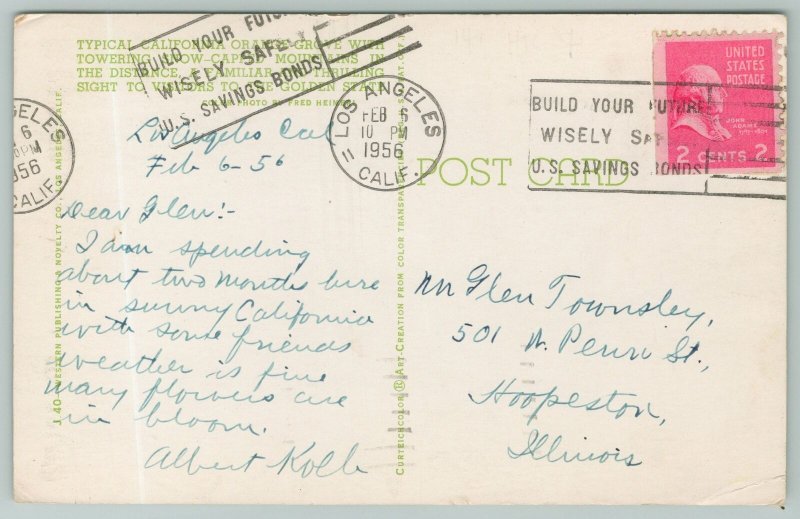 TYPICAL CALIFORNIA ORANGE GROVE WITH
TOWERING SNOW-CAPPED MOUNTAINS IN
THE DISTANCE, A FAMILIAR AND THRILLING
SIGHT TO VISITORS TO THE GOLDEN STATE.
COLOR PHOTO BY FRED
BUILD YOUR FUTURE
WISELY SAFELY
U.S. SAVINGS BONDS
GELES
6
PM
1956
CALIF.
LOS ANGELES
FEB 6
10 PM
1956
11 CALIF.
BUILD YOUR FUTURE
WISELY SAF
U.S. SAVINGS BONDS
UNITED
STATES
POSTAGE
JOHN
ADAMS
1797-1801
2 CENTS 2
POST CARD
Los Angeles Cal
Feb 6-56
Dear Glen:-
I am spending
about two months here
in sunny California
with some friends
weather is fine
many flowers are
in bloom.
Albert Kolb
Mr Glen Townsley,
501 N. Penn St.,
Hoopeston,
Illinois
J. 40—WESTERN PUBLISHING & NOVELTY CO., LOS ANGELES, CALIF.
CURTEICHCOLOR ® ART-CREATION FROM COLOR TRANSPARENCY